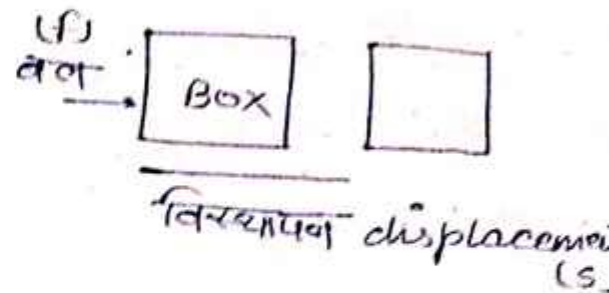 (f)
बल
BOX
विस्थापन displacemen
(S